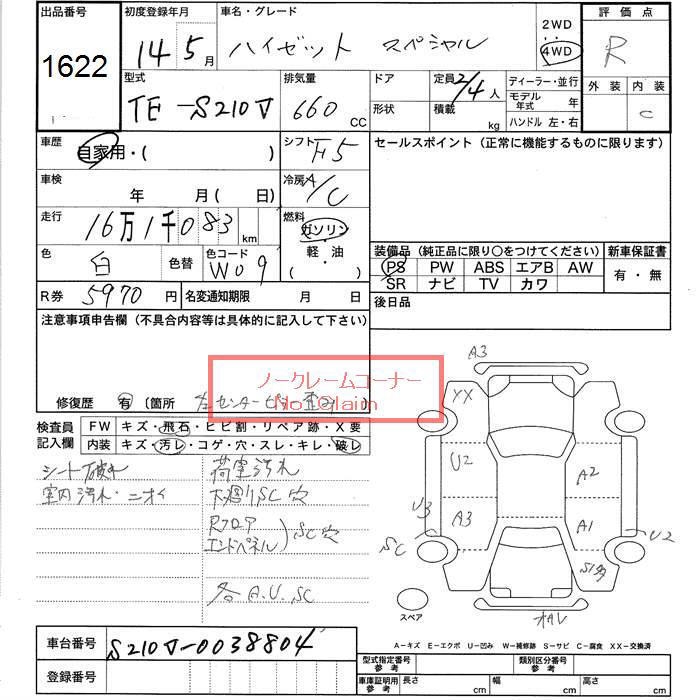 出品番号 初度登録年月 車名・グレード 2WD 評価点
1622 14年5月 ハイゼット スペシャル 4WD R
型式 排気量 ドア 定員 2/4人 ディーラー・並行 外装 内装
TE-S210V 660 CC 形状 積載 kg モデル年式 年 C
ハンドル 左・右
車歴 自家用・( ) シフト F5 セールスポイント(正常に機能するものに限ります)
車検 年 月( 日) 冷房 A/C
走行 16万1千083 km 燃料 ガソリン・軽・油・( )
色 白 色替 色コード W09 装備品(純正品に限り〇をつけてください) 新車保証書
PS PW ABS エアB AW 有・無
SR ナビ TV カワ
R券 5970円 名変通知期限 月 日 後日品
注意事項申告欄(不具合内容等は具体的に記入して下さい)
ノークレームコーナー
No Claim
修復歴 有 (箇所 左センターピラー
検査員記入欄 FW キズ・飛石・ヒビ割・リペア跡・X要
内装 キズ・汚レ・コゲ・穴・スレ・キレ・破レ
シート破れ 荷室汚れ
室内汚れ・ニオイ 下廻りSC穴
Rフロア
エンドパネル SC穴
各A.U.SC
A3
XX
U2 A2
U3 A3 A1 U2
SC S1多
スペア
A-キズ E-エクボ U-凹み W-補修跡 S-サビ C-腐食 XX-交換済
車台番号 S210V-0038804
登録番号
型式指定番号 参考 類別区分番号 参考
車庫証明用 参考 長さ cm 幅 cm 高さ cm